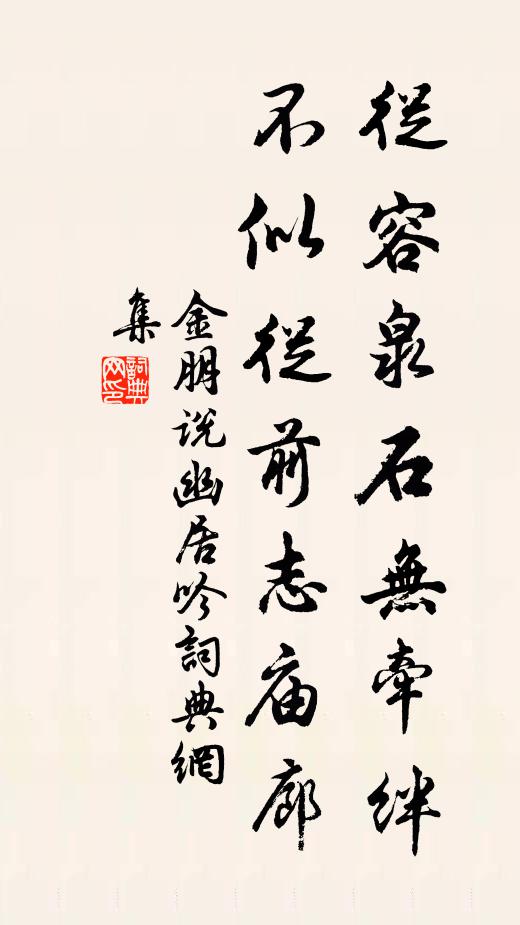 從容泉石無牽絆
不似從前志庙廊
金朋说幽居吟詞典網
集
詞典
网印